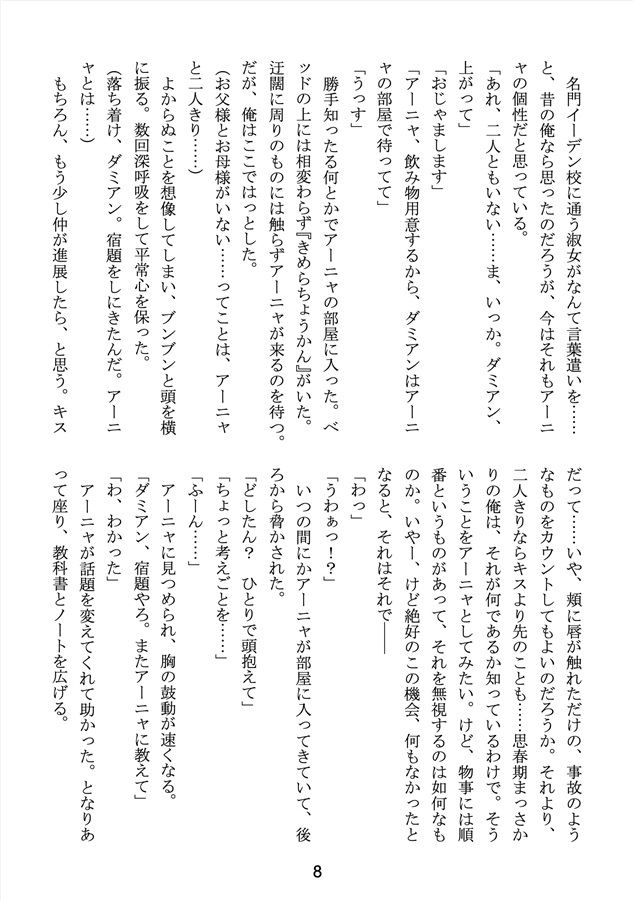 名門イーデン校に通う淑女がなんて言葉遣いを……
と、昔の俺なら思ったのだろうが、今はそれもアーニ
ャの個性だと思っている。
「あれ、二人ともいない……ま、いっか。ダミアン、
上がって」
「おじゃまします」
「アーニャ、飲み物用意するから、ダミアンはアーニ
ャの部屋で待ってて」
「うっす」
勝手知ったる何とかでアーニャの部屋に入った。ベ
ッドの上には相変わらず『きめらちょうかん』がいた。
迂闊に周りのものには触らずアーニャが来るのを待つ。
だが、俺はここではっとした。
（お父様とお母様がいない……ってことは、アーニャ
と二人きり……）
よからぬことを想像してしまい、ブンブンと頭を横
に振る。数回深呼吸をして平常心を保った。
（落ち着け、ダミアン。宿題をしにきたんだ。アーニ
ャとは……）
もちろん、もう少し仲が進展したら、と思う。キス
だって……いや、頬に唇が触れただけの、事故のよう
なものをカウントしてもよいのだろうか。それより、
二人きりならキスより先のことも……思春期まっさか
りの俺は、それが何であるか知っているわけで。そう
いうことをアーニャとしてみたい。けど、物事には順
番というものがあって、それを無視するのは如何なも
のか。いやー、けど絶好のこの機会、何もなかったと
なると、それはそれで――
「わっ」
「うわぁっ！？」
いつの間にかアーニャが部屋に入ってきていて、後
ろから脅かされた。
「どしたん？　ひとりで頭抱えて」
「ちょっと考えごとを……」
「ふーん……」
アーニャに見つめられ、胸の鼓動が速くなる。
「ダミアン、宿題やろ。またアーニャに教えて」
「わ、わかった」
アーニャが話題を変えてくれて助かった。となりあ
って座り、教科書とノートを広げる。
8